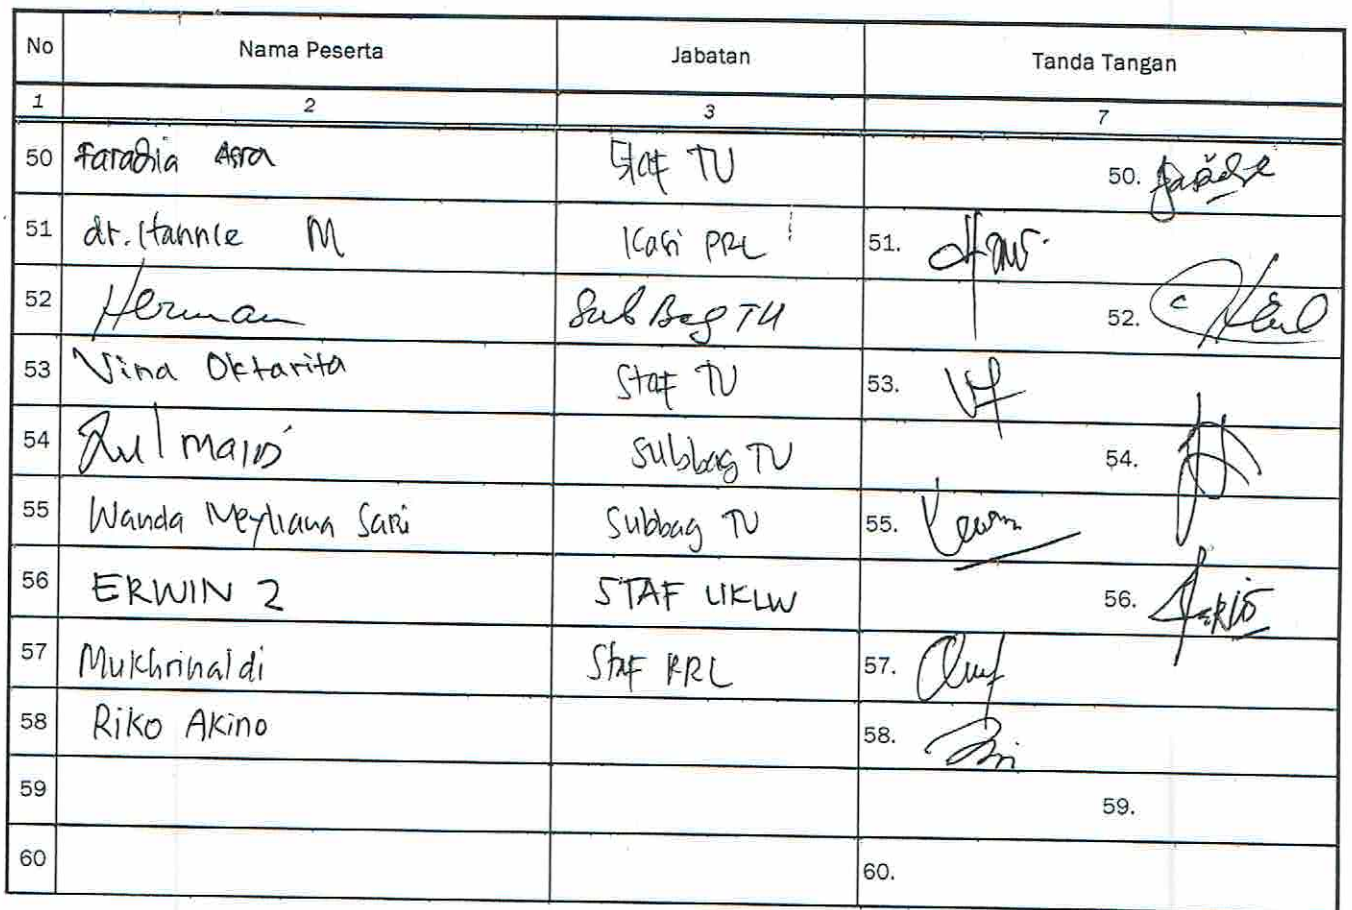 No Nama Peserta Jabatan Tanda Tangan
1 2 3 7
50 Faradia Asra Staf TU 50.
51 dr. Hannie M Kasi PRL 51.
52 Herman Sub Bag TU 52.
53 Vina Oktarita Staf TU 53.
54 Zulmaidi Subbag TU 54.
55 Wanda Meyliana Sari Subbag TU 55.
56 ERWIN 2 STAF UKLW 56.
57 Mukhrinaldi Staf PRL 57.
58 Riko Akino 58.
59 59.
60 60.